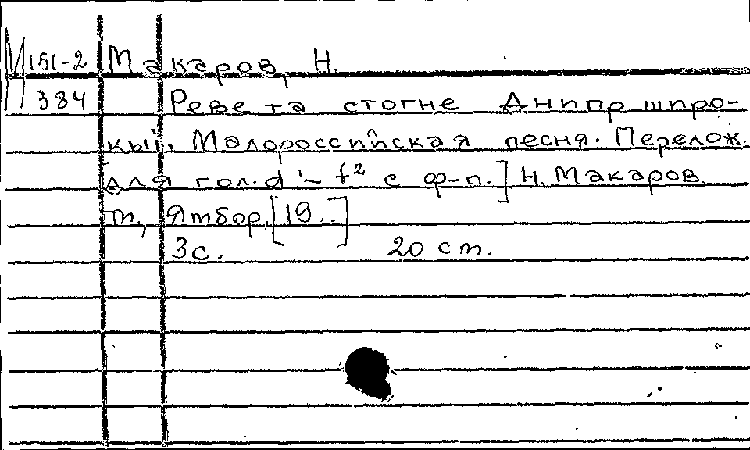 М 151-2 Макаров, Н.
384 Реве та стогне Днипр шпро-
кый. Малороссийская песня. Перелож.
для гол. d¹– f² с ф-п.] Н. Макаров
m, Ямбор, [19..]
3с. 20 cm.